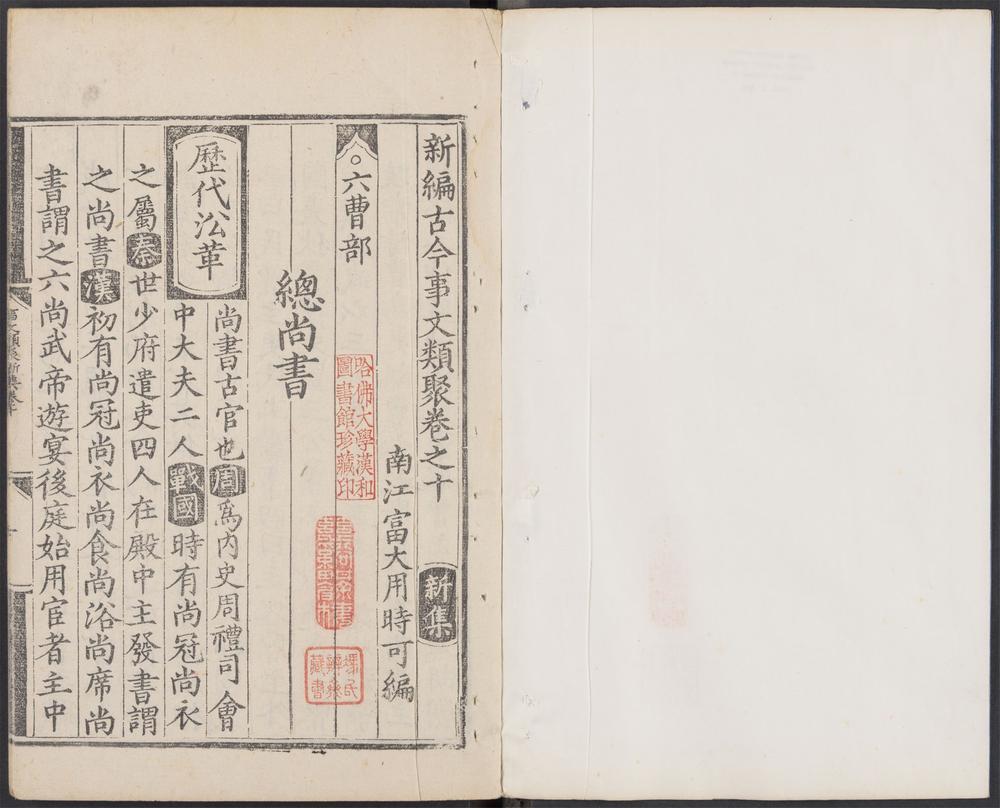 新編古今事文類聚卷之十 新集
南江富大用時可編
○六曹部
總尚書
歷代沿革
尚書古官也周爲內史周禮司會
中大夫二人戰國時有尚冠尚衣
之屬秦世少府遣吏四人在殿中主發書謂
之尚書漢初有尚冠尚衣尚食尚浴尚席尚
書謂之六尚武帝遊宴後庭始用宦者主中
哈佛大學漢和
圖書館珍藏印